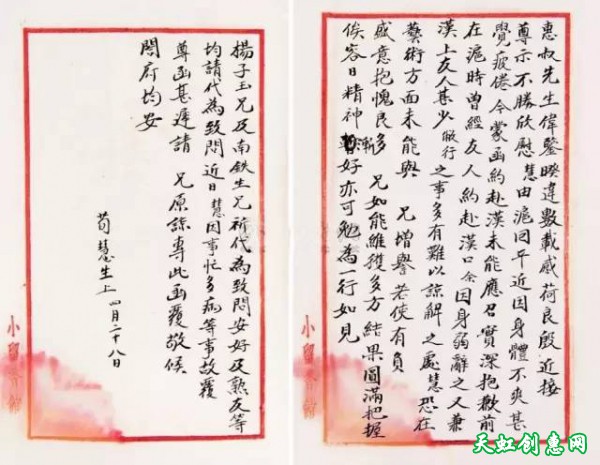 惠叔先生偉鑒睽違數載感荷良殷近接
尊示不勝欣慰慧由滬回平近因身體不爽甚
覺疲倦今蒙函約赴漢未能應召實深抱歉前
在滬時曾經友人約赴漢口余因身弱辭之又兼
漢上友人甚少做行之事多有難以諒解之處慧恐在
藝術方面未能與 兄增譽若使有負
盛意抱愧良多 兄如能維護多方結果圓滿把握
俟容日精神漸好亦可勉為一行如見
楊子玉兄及南鉄生兄祈代為致問安好及熟友等
均請代為致問近日慧因事忙多病等事故覆
尊函甚遲請 兄原諒專此函覆敬候
閤府均安
荀慧生上 四月二十八日
天虹创惠网